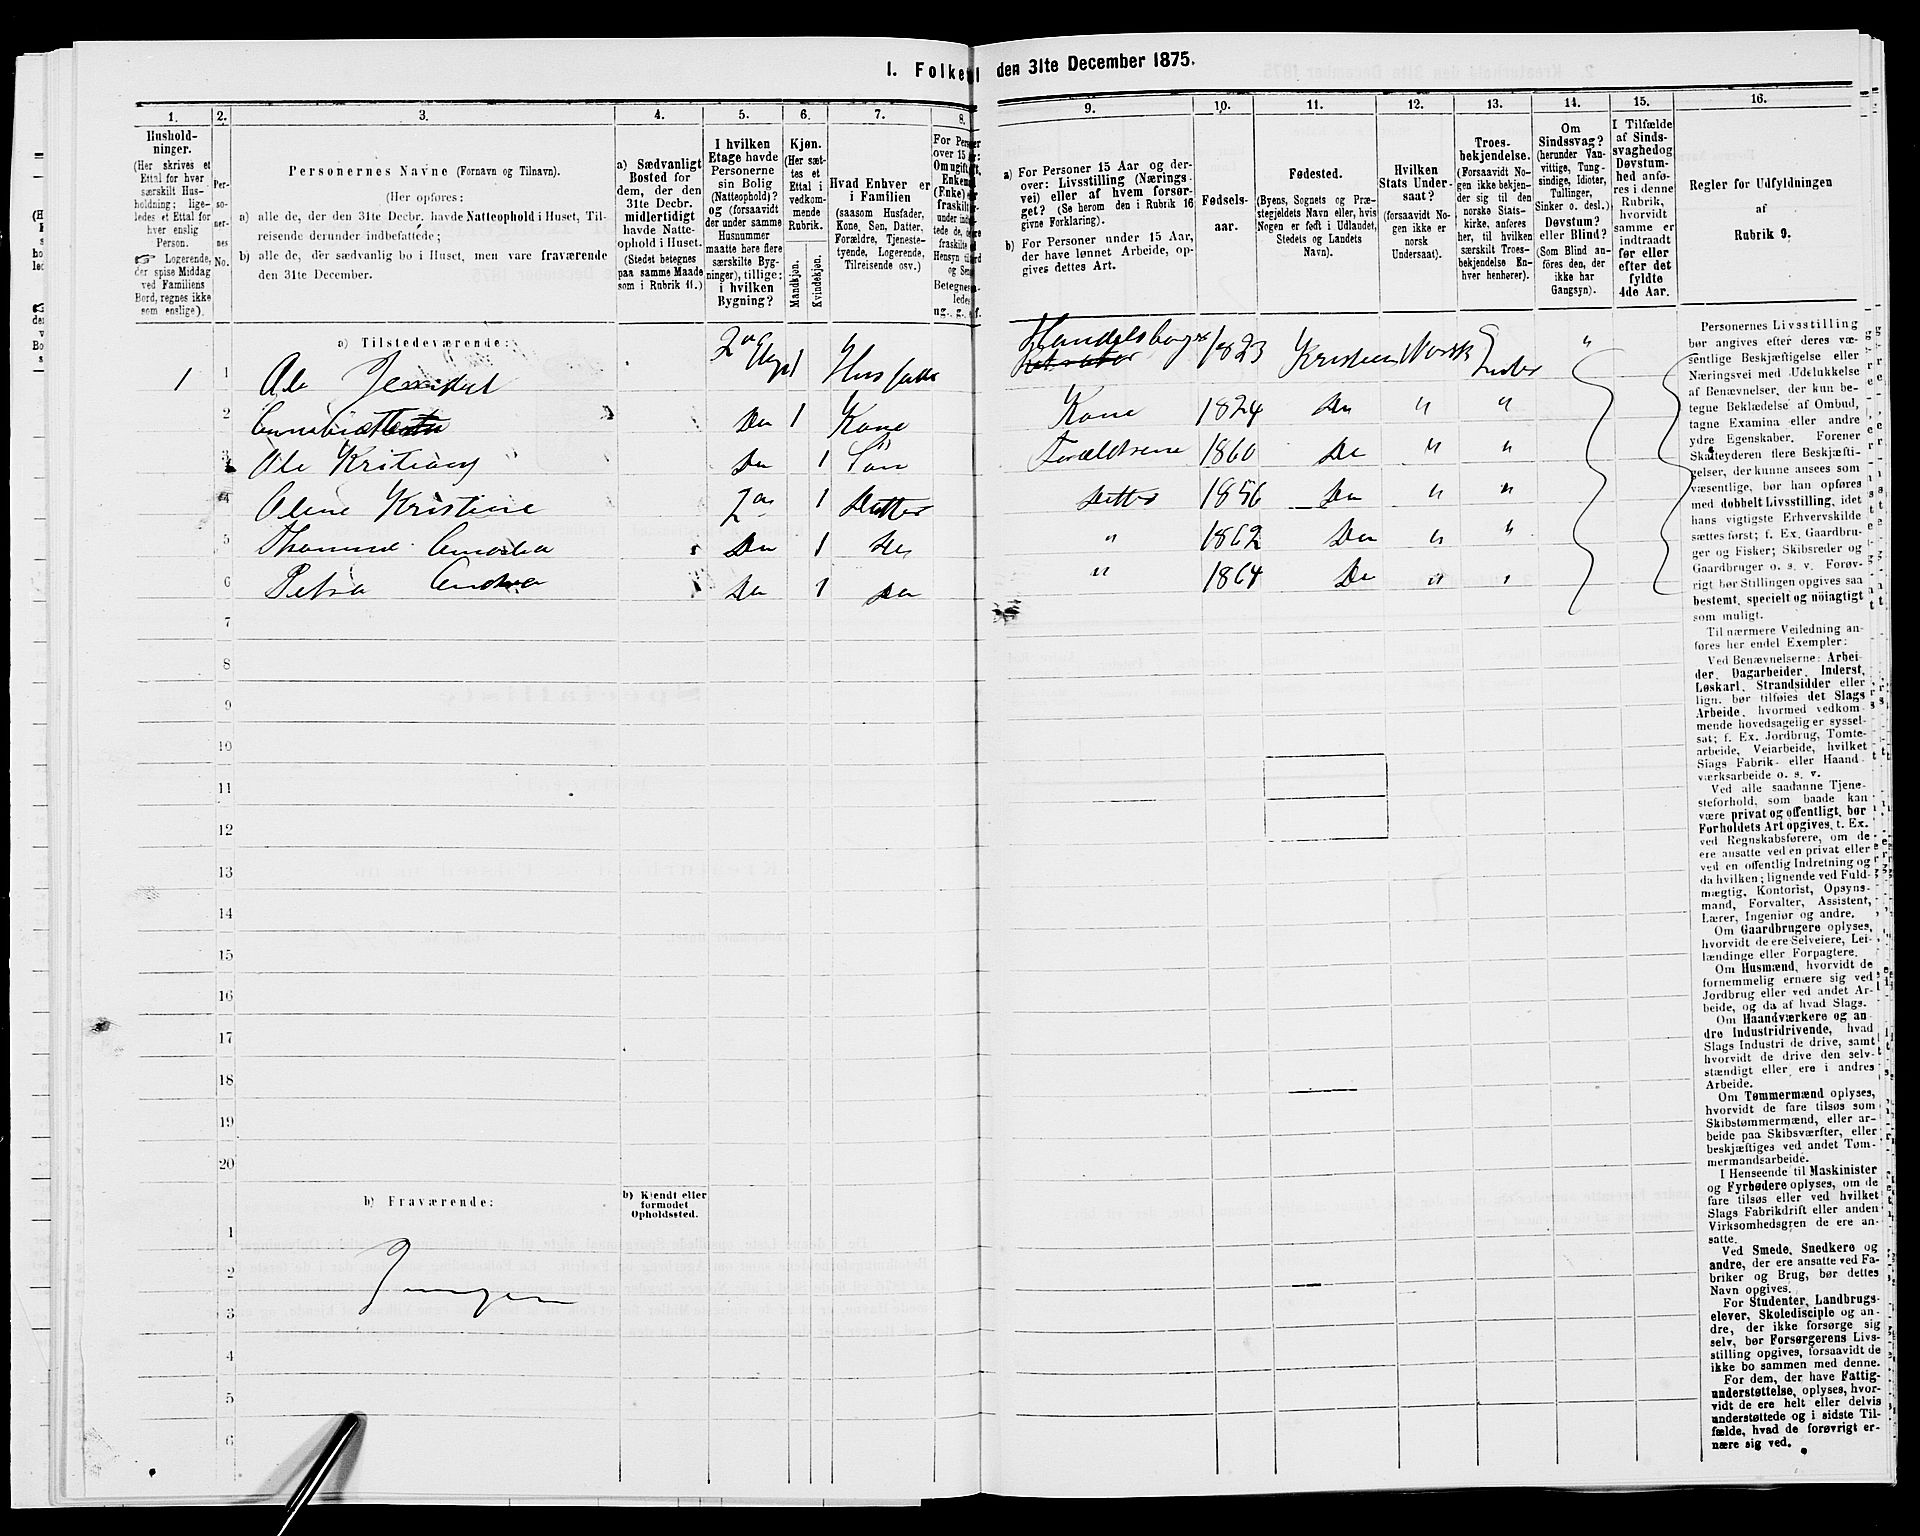 I. Folket
den 31te December 1875.
1. 2. 3. 4. 5. 6. 7. 8.
9. 10. 11. 12. 13. 14. 15. 16.
Hushold-
ninger.
(Her skrives et
Ettal for hver
særskilt Hus-
holdning; lige-
ledes et Ettal for
hver enslig
Person.
☞ Logerende,
der spise Middag
ved Familiens
Bord, regnes ikke
som enslige).
Per-
so-
ner-
nes
No.
Personernes Navne (Fornavn og Tilnavn).
(Her opføres:
a) alle de, der den 31te Decbr. havde Natteophold i Huset, Til-
reisende derunder indbefattede;
b) alle de, der sædvanlig bo i Huset, men vare fraværende
den 31te December.
a) Sædvanligt
Bosted for
dem, der den
31te Decbr.
midlertidigt
havde Natte-
ophold i Huset.
(Stedet betegnes
paa samme Maade
som i Rubrik 11.)
I hvilken
Etage havde
Personerne
sin Bolig
(Natteophold)?
og (forsaavidt
der under samme
Husnummer
maatte høre flere
særskilte Byg-
ninger), tillige:
i hvilken
Bygning?
Kjøn.
(Her sæt-
tes et
Ettal i
vedkom-
mende
Rubrik.
Mandkjøn.
Kvindekjøn.
Hvad Enhver er
i Familien
(saasom Husfader,
Kone, Søn, Datter,
Forældre, Tjeneste-
tyende, Logerende,
Tilreisende osv.)
For Per
over 15
Om ugift,
Enkem
(Enke)
fraskilt
a) For Personer 15 Aar og der-
over: Livsstilling (Nærings-
vei) eller af hvem forsør-
get? (Se herom den i Rubrik 16
givne Forklaring).
b) For Personer under 15 Aar,
der have lønnet Arbeide, op-
gives dettes Art.
Fødsels-
aar.
Fødested.
(Byens, Sognets og Præ-
stegjeldets Navn eller, hvis
Nogen er født i Udlandet,
Stedets og Landets
Navn).
Hvilken
Stats Under-
saat?
(forsaavidt No-
gen ikke er
norsk
Undersaat).
Troes-
bekjendelse.
(Forsaavidt No-
gen ikke bekjen-
der sig til den
norske Stats-
kirke, anføres
her, til hvilken
særskilt Troes-
bekjendelse En-
hver henhører).
Om
Sindssvag?
(herunder Van-
vittige, Tung-
sindige, Idioter,
Tullinger,
Sinker o. desl.)
Døvstum?
eller Blind?
(Som Blind an-
føres den, der
ikke har
Gangsyn).
I Tilfælde
af Sinds-
svaghed og
Døvstum-
hed anfø-
res i denne
Rubrik,
hvorvidt
samme er
indtraadt
før eller
efter det
fyldte
4de Aar.
Regler for Udfyldningen
af
Rubrik 9.
a) Tilstedeværende:
1 1 Ole 1 Husfader Handelsborger 1823 Norsk "
2 Do 1 Kone Kone 1824 Do " "
3 Ole Kristian Do 1 Søn Forældrene 1860 Do " "
4 Oline Kristine 1 Datter Datter 1856 Do " "
5 Do 1 Do " 1862 Do " "
6 Petra Andrea Do 1 Do " 1864 Do " "
7
8
9
10
11
12
13
14
15
16
17
18
19
20
b) Fraværende:
b) Kjendt eller
formodet
Opholdssted.
1
2
Ingen
3
4
5
6
Personernes Livsstilling
bør angives efter deres væ-
sentlige Beskjæftigelse eller
Næringsvei med Udelukkelse
af Benævnelser, der kun be-
tegne Beklædelse af Ombud,
tagne Examina eller andre
ydre Egenskaber. Forener
Skatteyderen flere Beskjæfti-
gelser, der kunne ansees som
væsentlige, bør han opføres
med dobbelt Livsstilling, idet
hans vigtigste Erhvervskilde
sættes først; f. Ex. Gaardbru-
ger og Fisker; Skibsreder og
Gaardbruger o. s. v. Forøv-
rigt bør Stillingen opgives saa
bestemt, specielt og nöiagtigt
som muligt.
Til nærmere Veiledning an-
føres her endel Exempler:
Ved Benævnelserne: Arbei-
der, Dagarbeider, Inderst,
Løskarl, Strandsidder eller
lign. bør tilføies det Slags
Arbeide, hvormed vedkom-
mende hovedsagelig er syssel-
sat; f. Ex. Jordbrug, Tomte-
arbeide, Veiarbeide, hvilket
Slags Fabrik- eller Haand-
værksarbeide o. s. v.
Ved alle saadanne Tjene-
steforhold, som baade kan
være privat og offentligt, bør
Forholdets Art opgives, t. Ex.
ved Regnskabsførere, om de
ere ansatte ved en privat eller
ved en offentlig Indretning og
da hvilken; lignende ved Fuld-
mægtig, Kontorist, Opsyns-
mand, Forvalter, Assistent,
Lærer, Ingeniør og andre.
Om Gaardbrugere oplyses,
hvorvidt de ere Selveiere, Lei-
lændinge eller Forpagtere.
Om Husmænd, hvorvidt de
fornemmelig ernære sig ved
Jordbrug eller ved andet Ar-
beide, og da af hvad Slags.
Om Haandværkere og an-
dre Industridrivende, hvad
Slags Industri de drive, samt
hvorvidt de drive den selv-
stændigt eller ere i andres
Arbeide.
Om Tømmermænd oplyses,
hvorvidt de fare tilsøs som
Skibstømmermænd, eller ar-
beide paa Skibsværfter, eller
beskjæftiges ved andet Tøm-
mermandsarbeide.
I Henseende til Maskinister
og Fyrbødere oplyses, om de
fare tilsøs eller ved hvilket
Slags Fabrikdrift eller anden
Virksomhedsgren de ere an-
satte.
Ved Smede, Snedkere og
andre, der ere ansatte ved Fa-
briker og Brug, bør dettes
Navn opgives.
For Studenter, Landbrugs-
elever, Skoledisciple og an-
dre, der ikke forsørge sig
selv, bør Forsørgerens Livs-
stilling opgives, forsaavidt de
ikke bo sammen med denne.
For dem, der have Fattig-
understøttelse, oplyses, hvor-
vidt de ere helt eller delvis
understøttede og i sidste Til-
fælde, hvad de forøvrigt er-
nære sig ved.